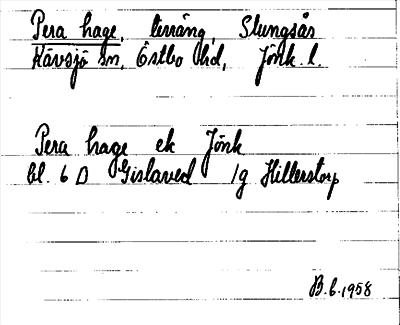 Pera hage, terräng, Slungsås
Kävsjö sn, Östbo hd, Jönk. l.
Pera hage ek Jönk
bl. 6 D Gislaved 1g Hillerstorp
B.b. 1958